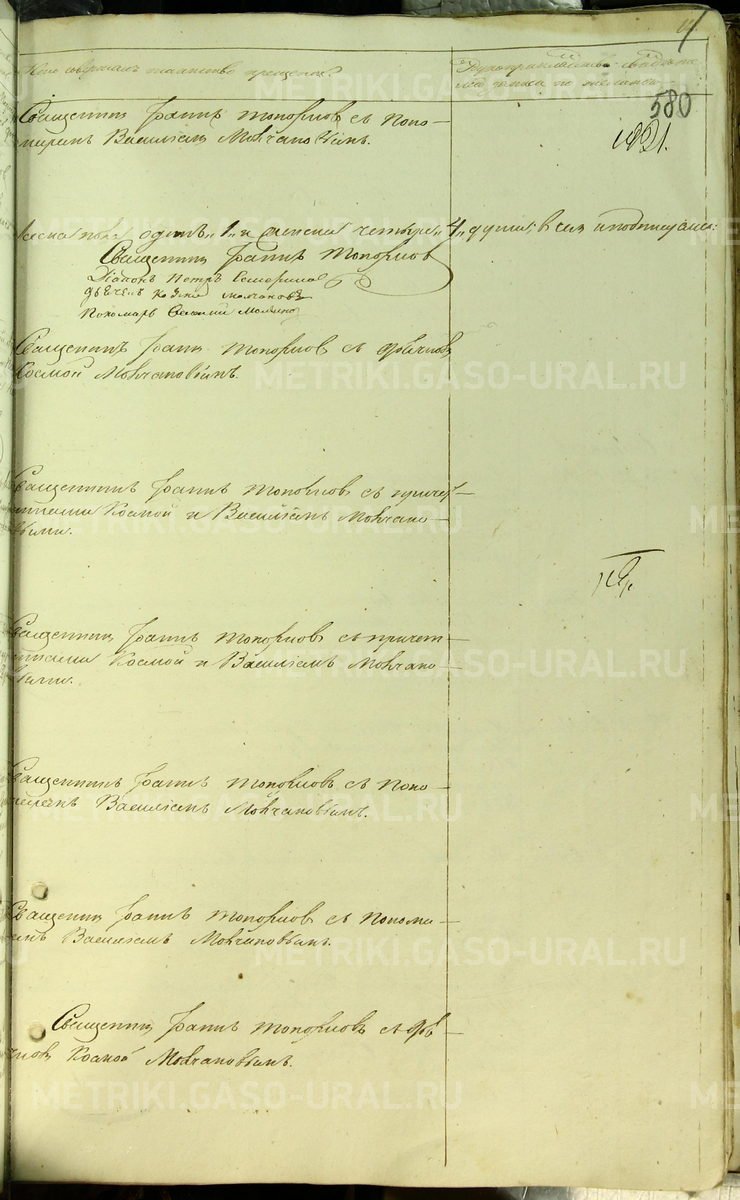 Кто совершалъ таинство крещенія.
Рукоприкладство свидѣтелей записи по желанію.
580
Священникъ Іоаннъ Топорковъ съ Поно-
маремъ Василіемъ Молчановымъ.
мужеска пола одинъ „1“ и женска четыре „4“ души; въ сем и подписуемся:
Священникъ Іоаннъ Топорковъ
Діаконъ Петръ
Дьячекъ Козма Молчановъ
Пономарь Василий Молчановъ
Священникъ Іоаннъ Топорковъ съ дьячкомъ
Космой Молчановымъ.
Священникъ Іоаннъ Топорковъ съ причет-
никами Космой и Василіемъ Молчано-
выми.
Священникъ Іоаннъ Топорковъ съ причет-
никами Космой и Василіемъ Молчано-
выми.
Священникъ Іоаннъ Топорковъ съ Поно-
маремъ Василіемъ Молчановымъ.
Священникъ Іоаннъ Топорковъ съ Понома-
ремъ Василіемъ Молчановымъ.
Священникъ Іоаннъ Топорковъ съ дья-
чкомъ Космой Молчановымъ.
METRIKI.GASO-URAL.RU